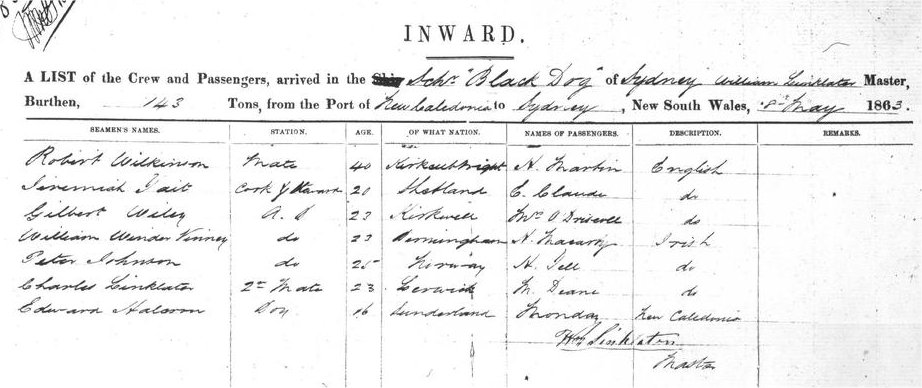 INWARD.
A LIST of the Crew and Passengers, arrived in the Ship Schr "Black Dog" of Sydney William Linklater Master,
Burthen, 143 Tons, from the Port of New Caledonia to Sydney, New South Wales, 8th May 1863.
SEAMEN'S NAMES. STATION. AGE. OF WHAT NATION. NAMES OF PASSENGERS. DESCRIPTION. REMARKS.
Robert Wilkinson Mate 40 Kirkcudbright A. Martin English
Jeremiah Tait Cook & Steward 20 Shetland C. Claude do
Gilbert Wiley A. S 23 Kirkwall Mrs O'Driscoll do
William Winder do 23 Birmingham Irish
Peter Johnson do 25 Norway do
Charles Linklater 2nd Mate 23 Lerwick M. Deane do
Edward Boy 16 Sunderland Monday New Caledonia
Wm Linklater
Master